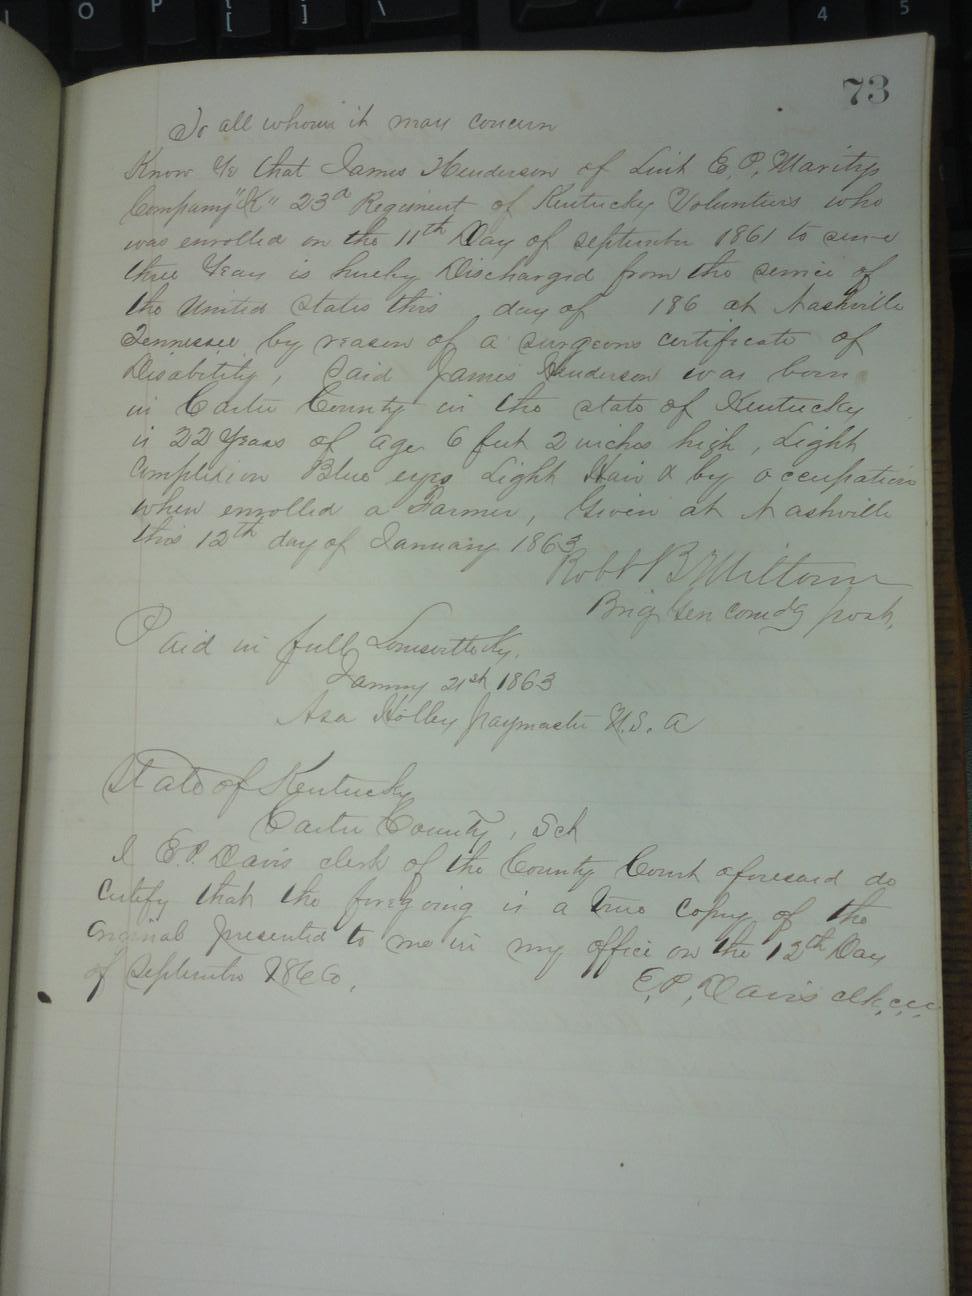 73
To all whom it may concern
Know Ye that James Henderson of Liut E. P. Maritys
Company "K" 23d Regiment of Kentucky Volunteirs who
was enrolled on the 11th Day of september 1861 to serve
three Years is hereby Discharged from the service of
the United States this day of 186 at Nashville
Tennessee by reason of a surgeons certificate of
Disability, Said James Henderson was born
in Carter County in the state of Kentucky
is 22 Years of age 6 feet 2 inches high, Light
Complexion Blue eyes Light Hair & by occupation
when enrolled a Farmer, Given at Nashville
this 12th day of January 1863
Robt B Miltom
Brig Gen comdg post,
Paid in full Louisville Ky.
January 21st 1863
Asa Holley paymaster U.S.A
State of Kentucky
Carter County, Sct
I E.P. Davis clerk of the County Court aforesaid do
Certify that the foregoing is a true Copy of the
Original presented to me in my office on the 12th Day
of September 1866.
E. P. Davis clk, ccc
P
O
[
{
]
}
\
|
4
5